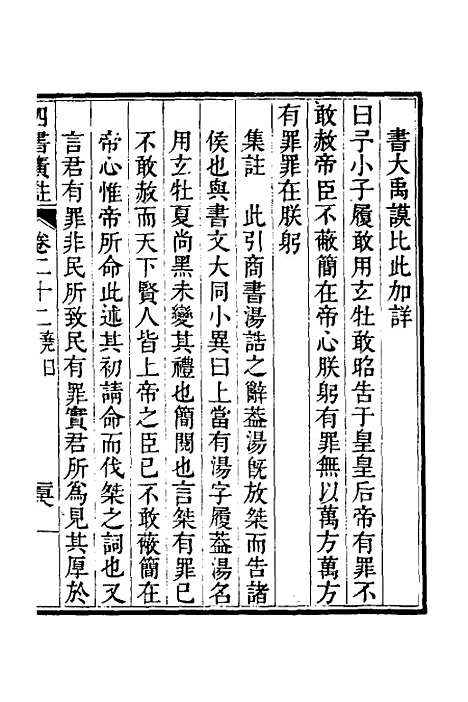 書大禹謨比此加詳
曰予小子履敢用玄牡敢昭告于皇皇后帝有罪不
敢赦帝臣不蔽簡在帝心朕躬有罪無以萬方萬方
有罪罪在朕躬
集註 此引商書湯誥之辭葢湯旣放桀而告諸
侯也與書文大同小異曰上當有湯字履葢湯名
用玄牡夏尚黑未變其禮也簡閱也言桀有罪已
不敢赦而天下賢人皆上帝之臣已不敢蔽簡在
帝心惟帝所命此述其初請命而伐桀之詞也又
言君有罪非民所致民有罪實君所爲見其厚於
四書廣註 卷二十二 堯曰